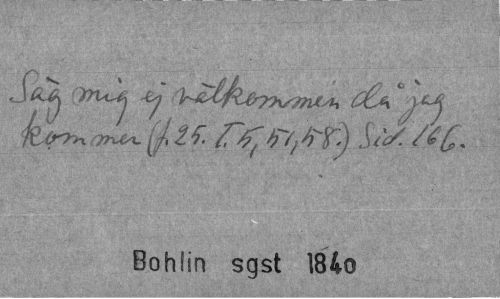 Säg mig ej välkommen då jag
kommer (f. 25. I. 5, 51, 58.) Sid. 166.
Bohlin sgst 1840